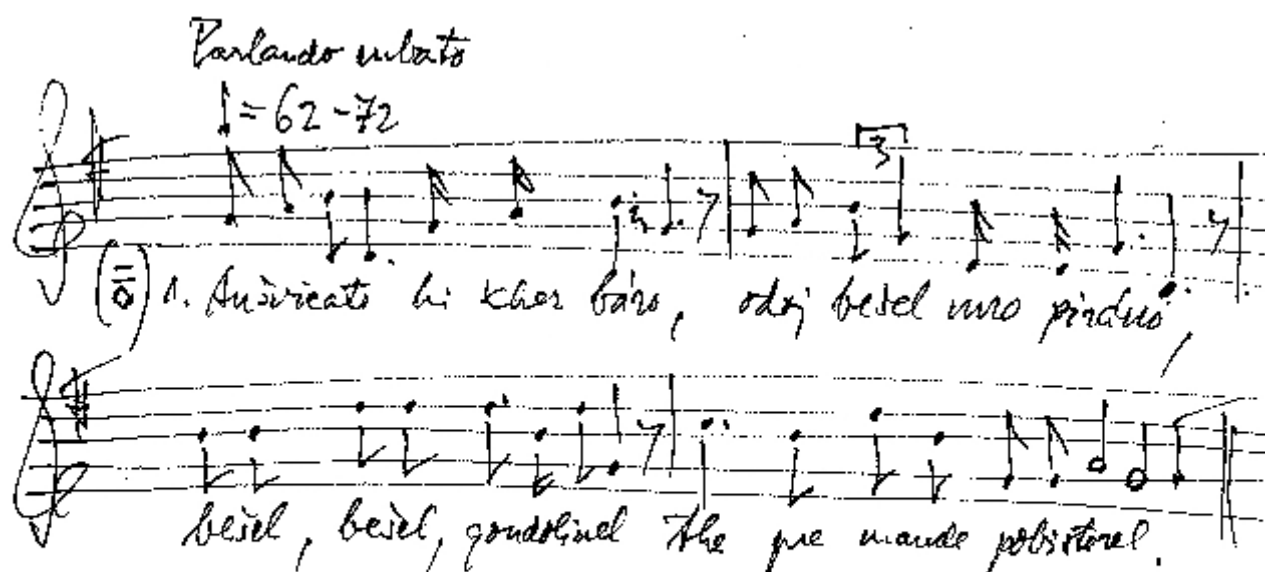 Parlando rubato
♩ = 62-72
3
1. Aušvicate hi kher báro, odoj bešel mro pirano,
bešel, bešel, gondolinel the pre mande pobisterel.